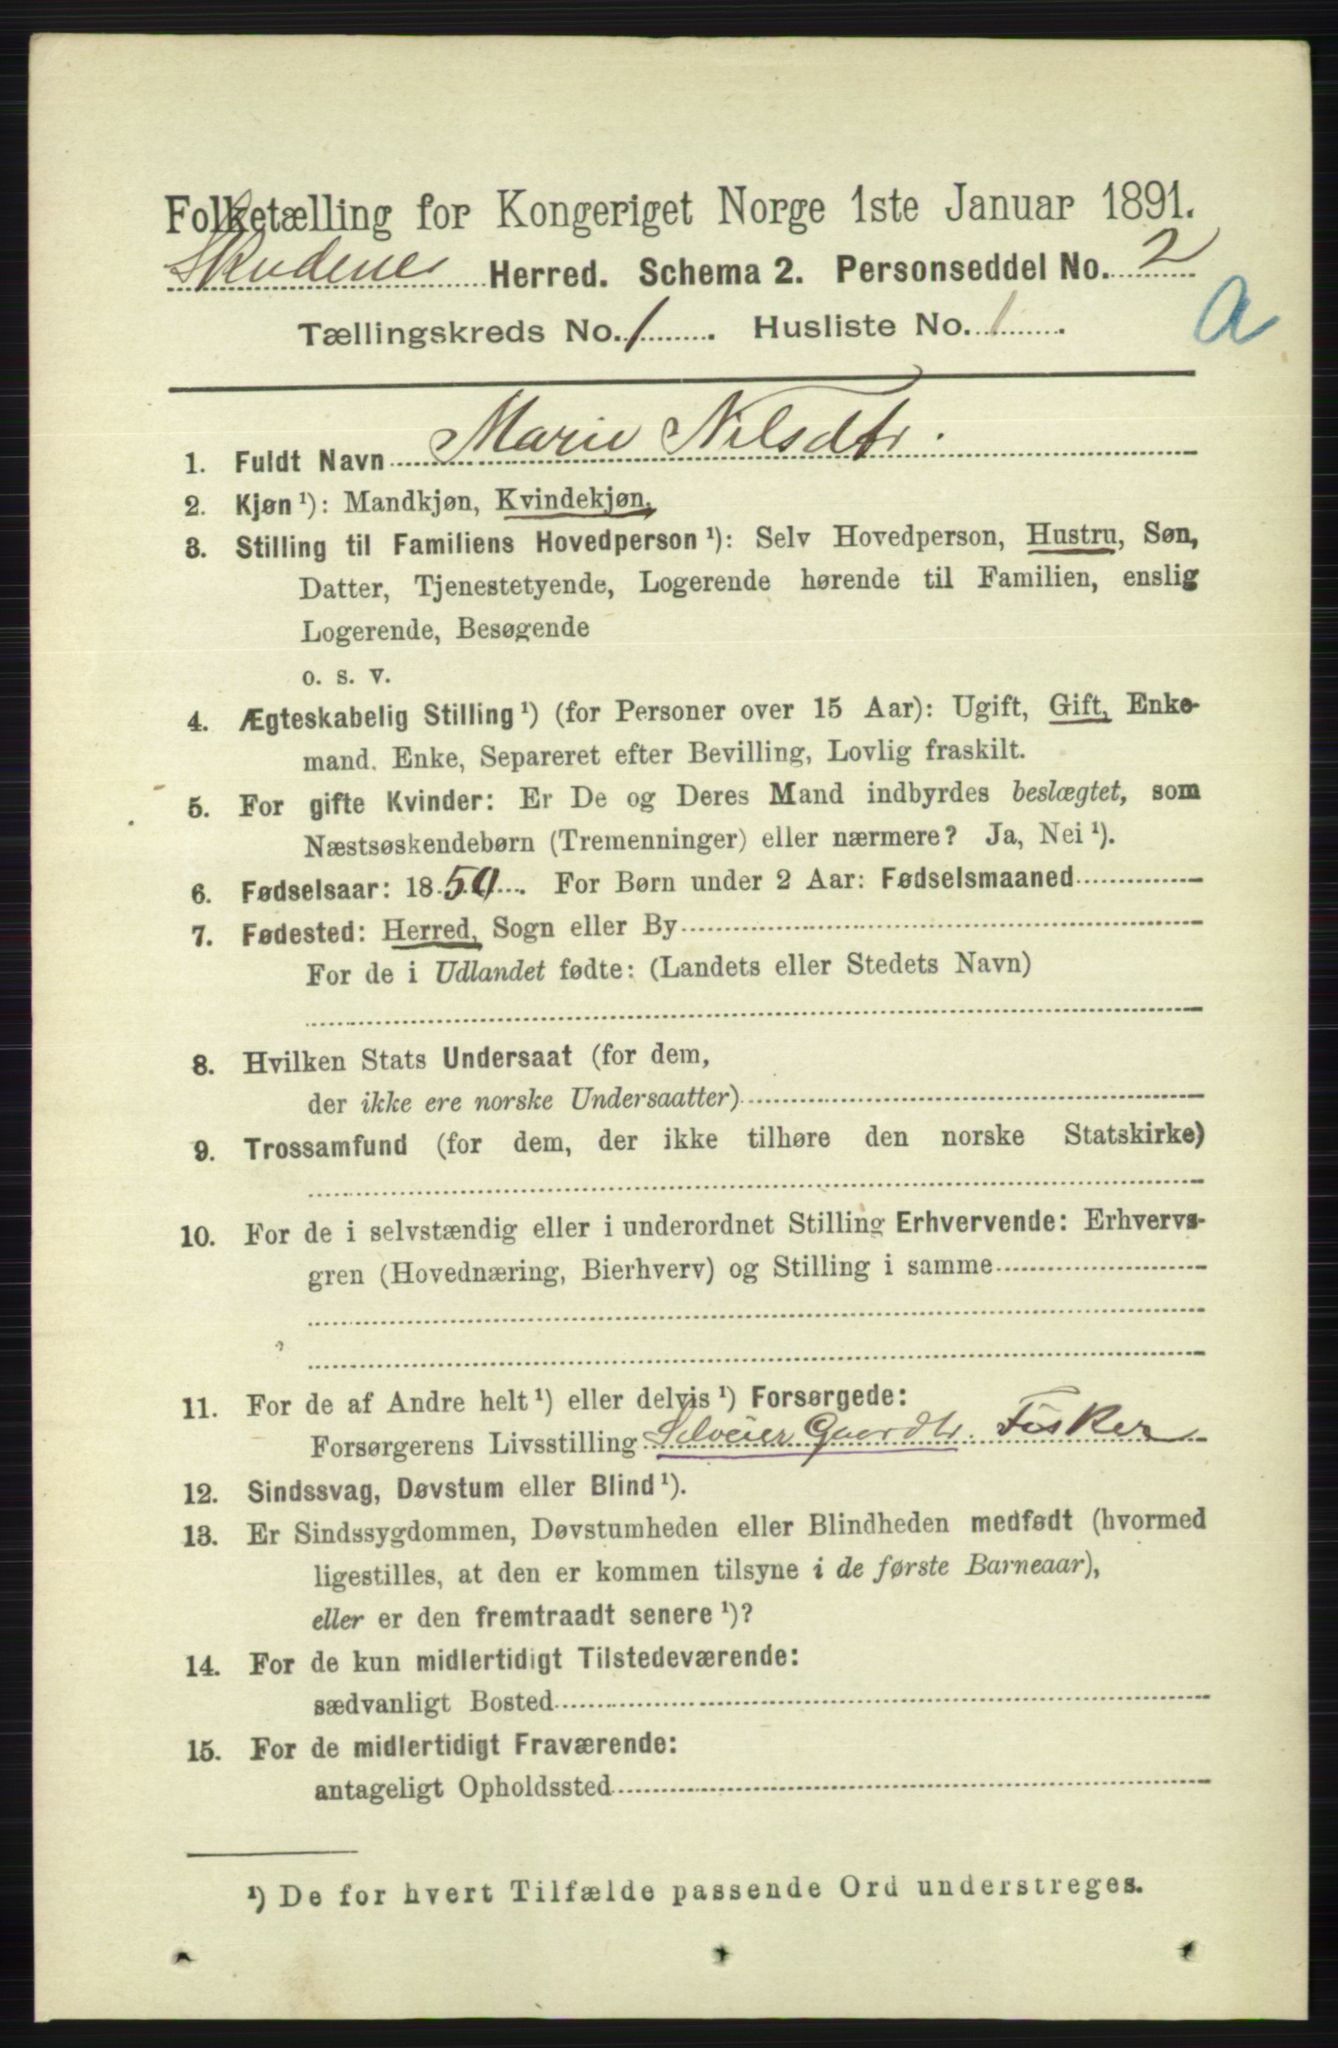 Folketælling for Kongeriget Norge 1ste Januar 1891.
Skudenes Herred. Schema 2. Personseddel No. 2
Tællingskreds No. 1. Husliste No. 1.
a
1. Fuldt Navn Marie Nilsdtr.
2. Kjøn ¹): Mandkjøn, Kvindekjøn.
3. Stilling til Familiens Hovedperson ¹): Selv Hovedperson, Hustru, Søn,
Datter, Tjenestetyende, Logerende hørende til Familien, enslig
Logerende, Besøgende
o. s. v.
4. Ægteskabelig Stilling ¹) (for Personer over 15 Aar): Ugift, Gift, Enke-
mand. Enke, Separeret efter Bevilling, Lovlig fraskilt.
5. For gifte Kvinder: Er De og Deres Mand indbyrdes beslægtet, som
Næstsøskendebørn (Tremenninger) eller nærmere? Ja, Nei ¹).
6. Fødselsaar: 1850. For Børn under 2 Aar: Fødselsmaaned
7. Fødested: Herred, Sogn eller By
For de i Udlandet fødte: (Landets eller Stedets Navn)
8. Hvilken Stats Undersaat (for dem,
der ikke ere norske Undersaatter)
9. Trossamfund (for dem, der ikke tilhøre den norske Statskirke)
10. For de i selvstændig eller i underordnet Stilling Erhvervende: Erhvervs-
gren (Hovednæring, Bierhverv) og Stilling i samme
11. For de af Andre helt ¹) eller delvis ¹) Forsørgede:
Forsørgerens Livsstilling Selveier Gaardbr. Fisker
12. Sindssvag, Døvstum eller Blind ¹).
13. Er Sindssygdommen, Døvstumheden eller Blindheden medfødt (hvormed
ligestilles, at den er kommen tilsyne i de første Barneaar),
eller er den fremtraadt senere ¹)?
14. For de kun midlertidigt Tilstedeværende:
sædvanligt Bosted
15. For de midlertidigt Fraværende:
antageligt Opholdssted
¹) De for hvert Tilfælde passende Ord understreges.